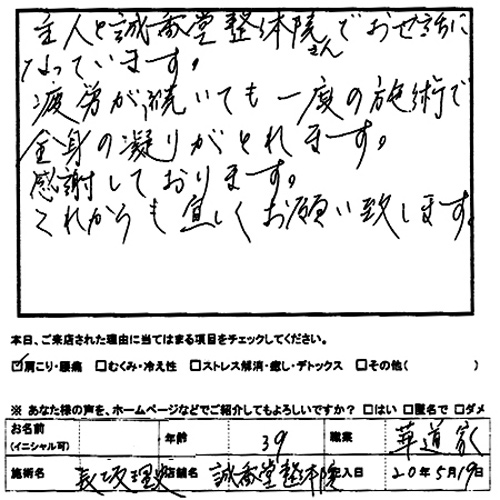 主人と誠斎堂整体院さんでお世話に
なっています。
疲労が続いても一度の施術で
全身の凝りがとれます。
感謝しております。
これからも宜しくお願い致します。
本日、ご来店された理由に当てはまる項目をチェックしてください。
☑肩こり・腰痛 □むくみ・冷え性 □ストレス解消・癒し・デトックス □その他( )
※ あなた様の声を、ホームページなどでご紹介してもよろしいですか? □はい □匿名で □ダメ
お名前(イニシャル可) 年齢 39 職業 華道家
施術名 店舗名 誠斎堂整体院 記入日 20年5月19日